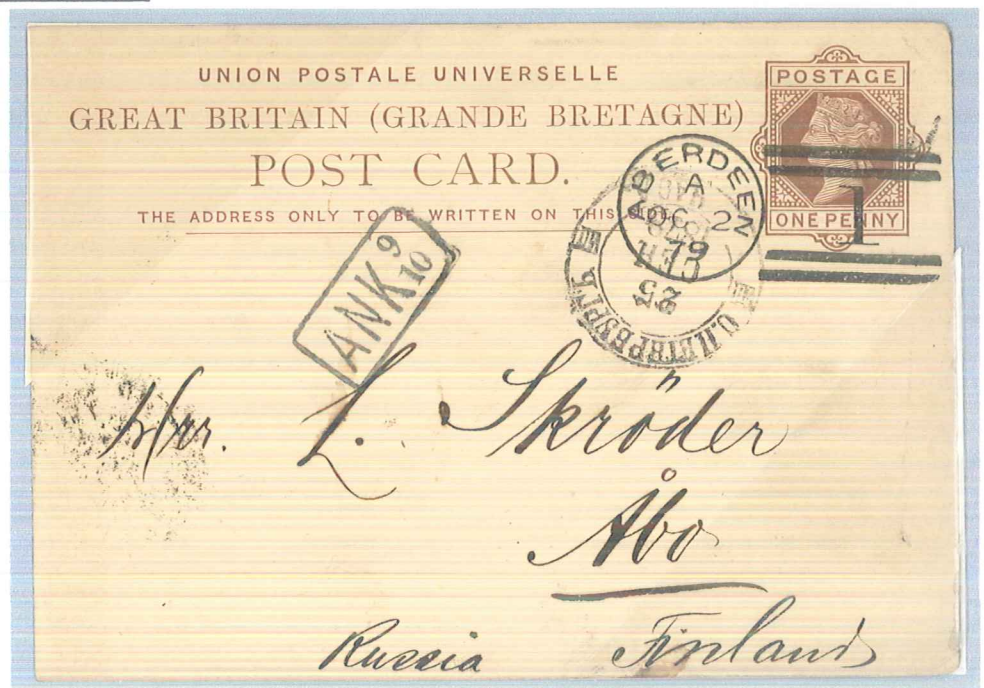 UNION POSTALE UNIVERSELLE
GREAT BRITAIN (GRANDE BRETAGNE)
POST CARD.
THE ADDRESS ONLY TO BE WRITTEN ON THIS
POSTAGE
ONE PENNY
1
ABERDEEN
A
OC 2
79
ANK 9/10
Herr. L. Skröder
Åbo
Russia Finland